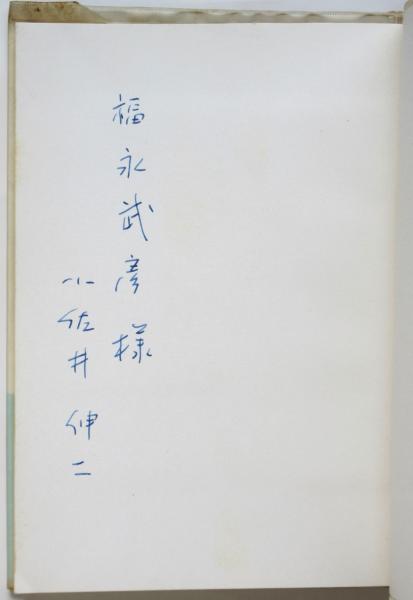 福永武彦様
小佐井伸二